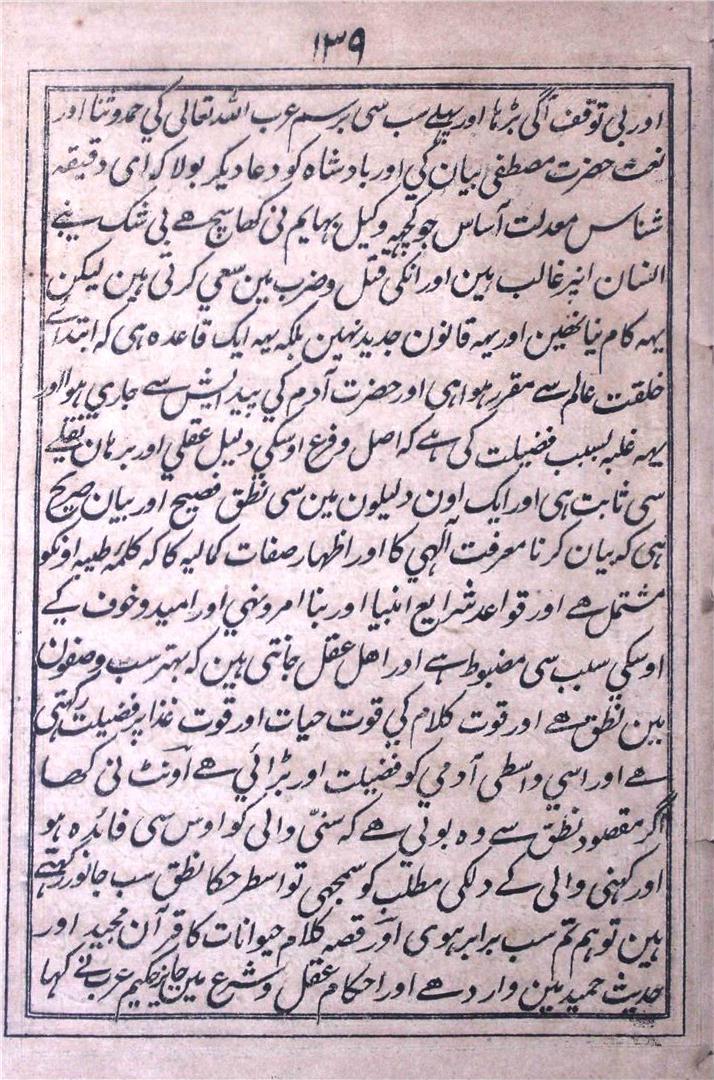 ۱۳۹
اور بی توقف آگی بڑہا اور پہلے سب سی برسم عرب اللہ تعالی کي حمد و ثنا اور
نعت حضرت مصطفی بیان کي اور بادشاہ کو دعا دیکر بولا کہ ای دقیقہ
شناس معدلت آساس جو کچہہ وکیل بہایم نی کہا سچ ھے بی شک بنے
النسان انپر غالب ہین اور انکی قتل و ضرب مین سعي کرتی ہین لیکن
یہہ کام نیا نھین اور یہہ قانون جدید نہین بلکہ یہہ ایک قاعدہ ہی کہ ابتداے
خلقت عالم سے مقرر ہوا ہی اور حضرت آدم کي پیدایش سے جاري ہوا اور
یہہ غلبہ بسبب فضیلت کی ہے کہ اصل و فرع اوسکي دلیل عقلي اور برہان نقلے
سی ثابت ہی اور ایک اون دلیلون مین سی نطق فصیح اور بیان صریح
ہی کہ بیان کرنا معرفت آلہي کا اور اظہار صفات کمالیہ کا کہ کلمۂ طیبہ اونکو
مشتمل ھے اور قواعد شرایع انبیا اور بنا امر و نہي اور امید و خوف کے
اوسکي سبب سی مضبوط ہے اور اھل عقل جانتی ہین کہ بہتر سب وصفون
مین نطق ھے اور قوت کلام کي قوت حیات اور قوت غذا پر فضیلت رکہتی
ھے اور اسي واسطی آدمي کو فضیلت اور بڑائي ھے اونٹ نی کھا
اگر مقصود نطق سے وہ بولي ھے کہ سننی والی کو اوس سی فائدہ ہو
اور کہنی والی کے دلکی مطلب کو سمجھی تو اسطرحکا نطق سب جانور رکہتے
ہین تو ہم تم سب برابر ہوی اور قصہ کلام حیوانات کا قرآن مجید اور
حدیث حمید مین وارد ھے اور احکام عقل و شرع مین جایز حکیم عرب نے کہا